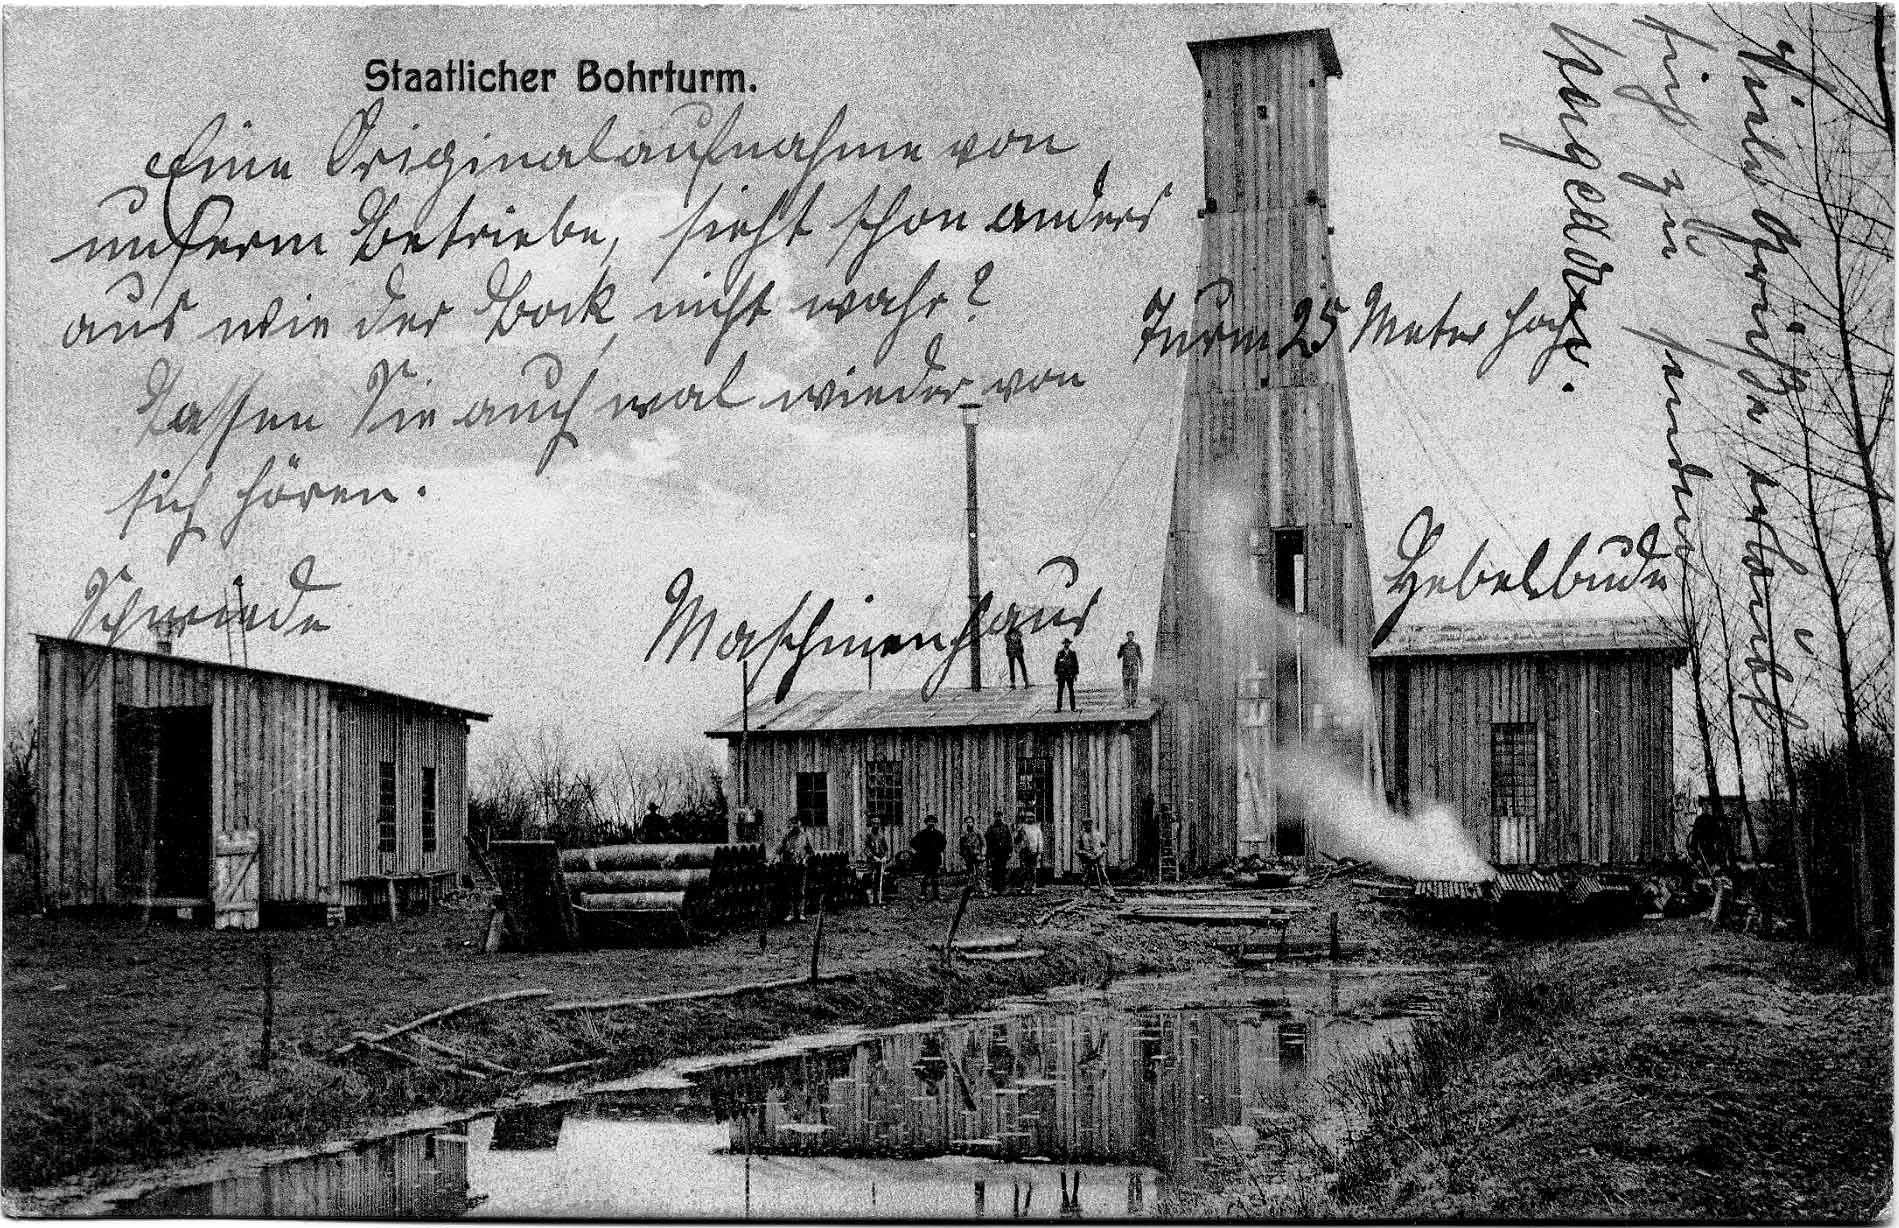 Staatlicher Bohrturm.
Eine Originalaufnahme von
unserm Betriebe, sieht schon anders
aus wie der Bock, nicht wahr?
Lassen Sie auch mal wieder von
sich hören.
Turm 25 Meter hoch.
Schmiede
Maschinenhaus
Hebelbude
Viele Grüße erlaubt
sich zu senden